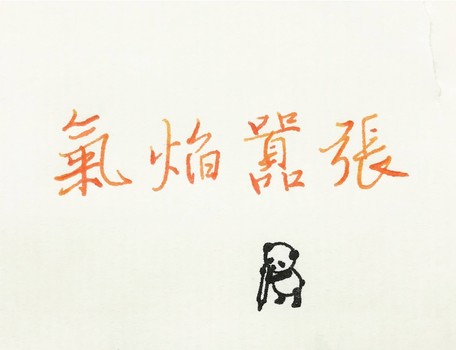 氣焰囂張